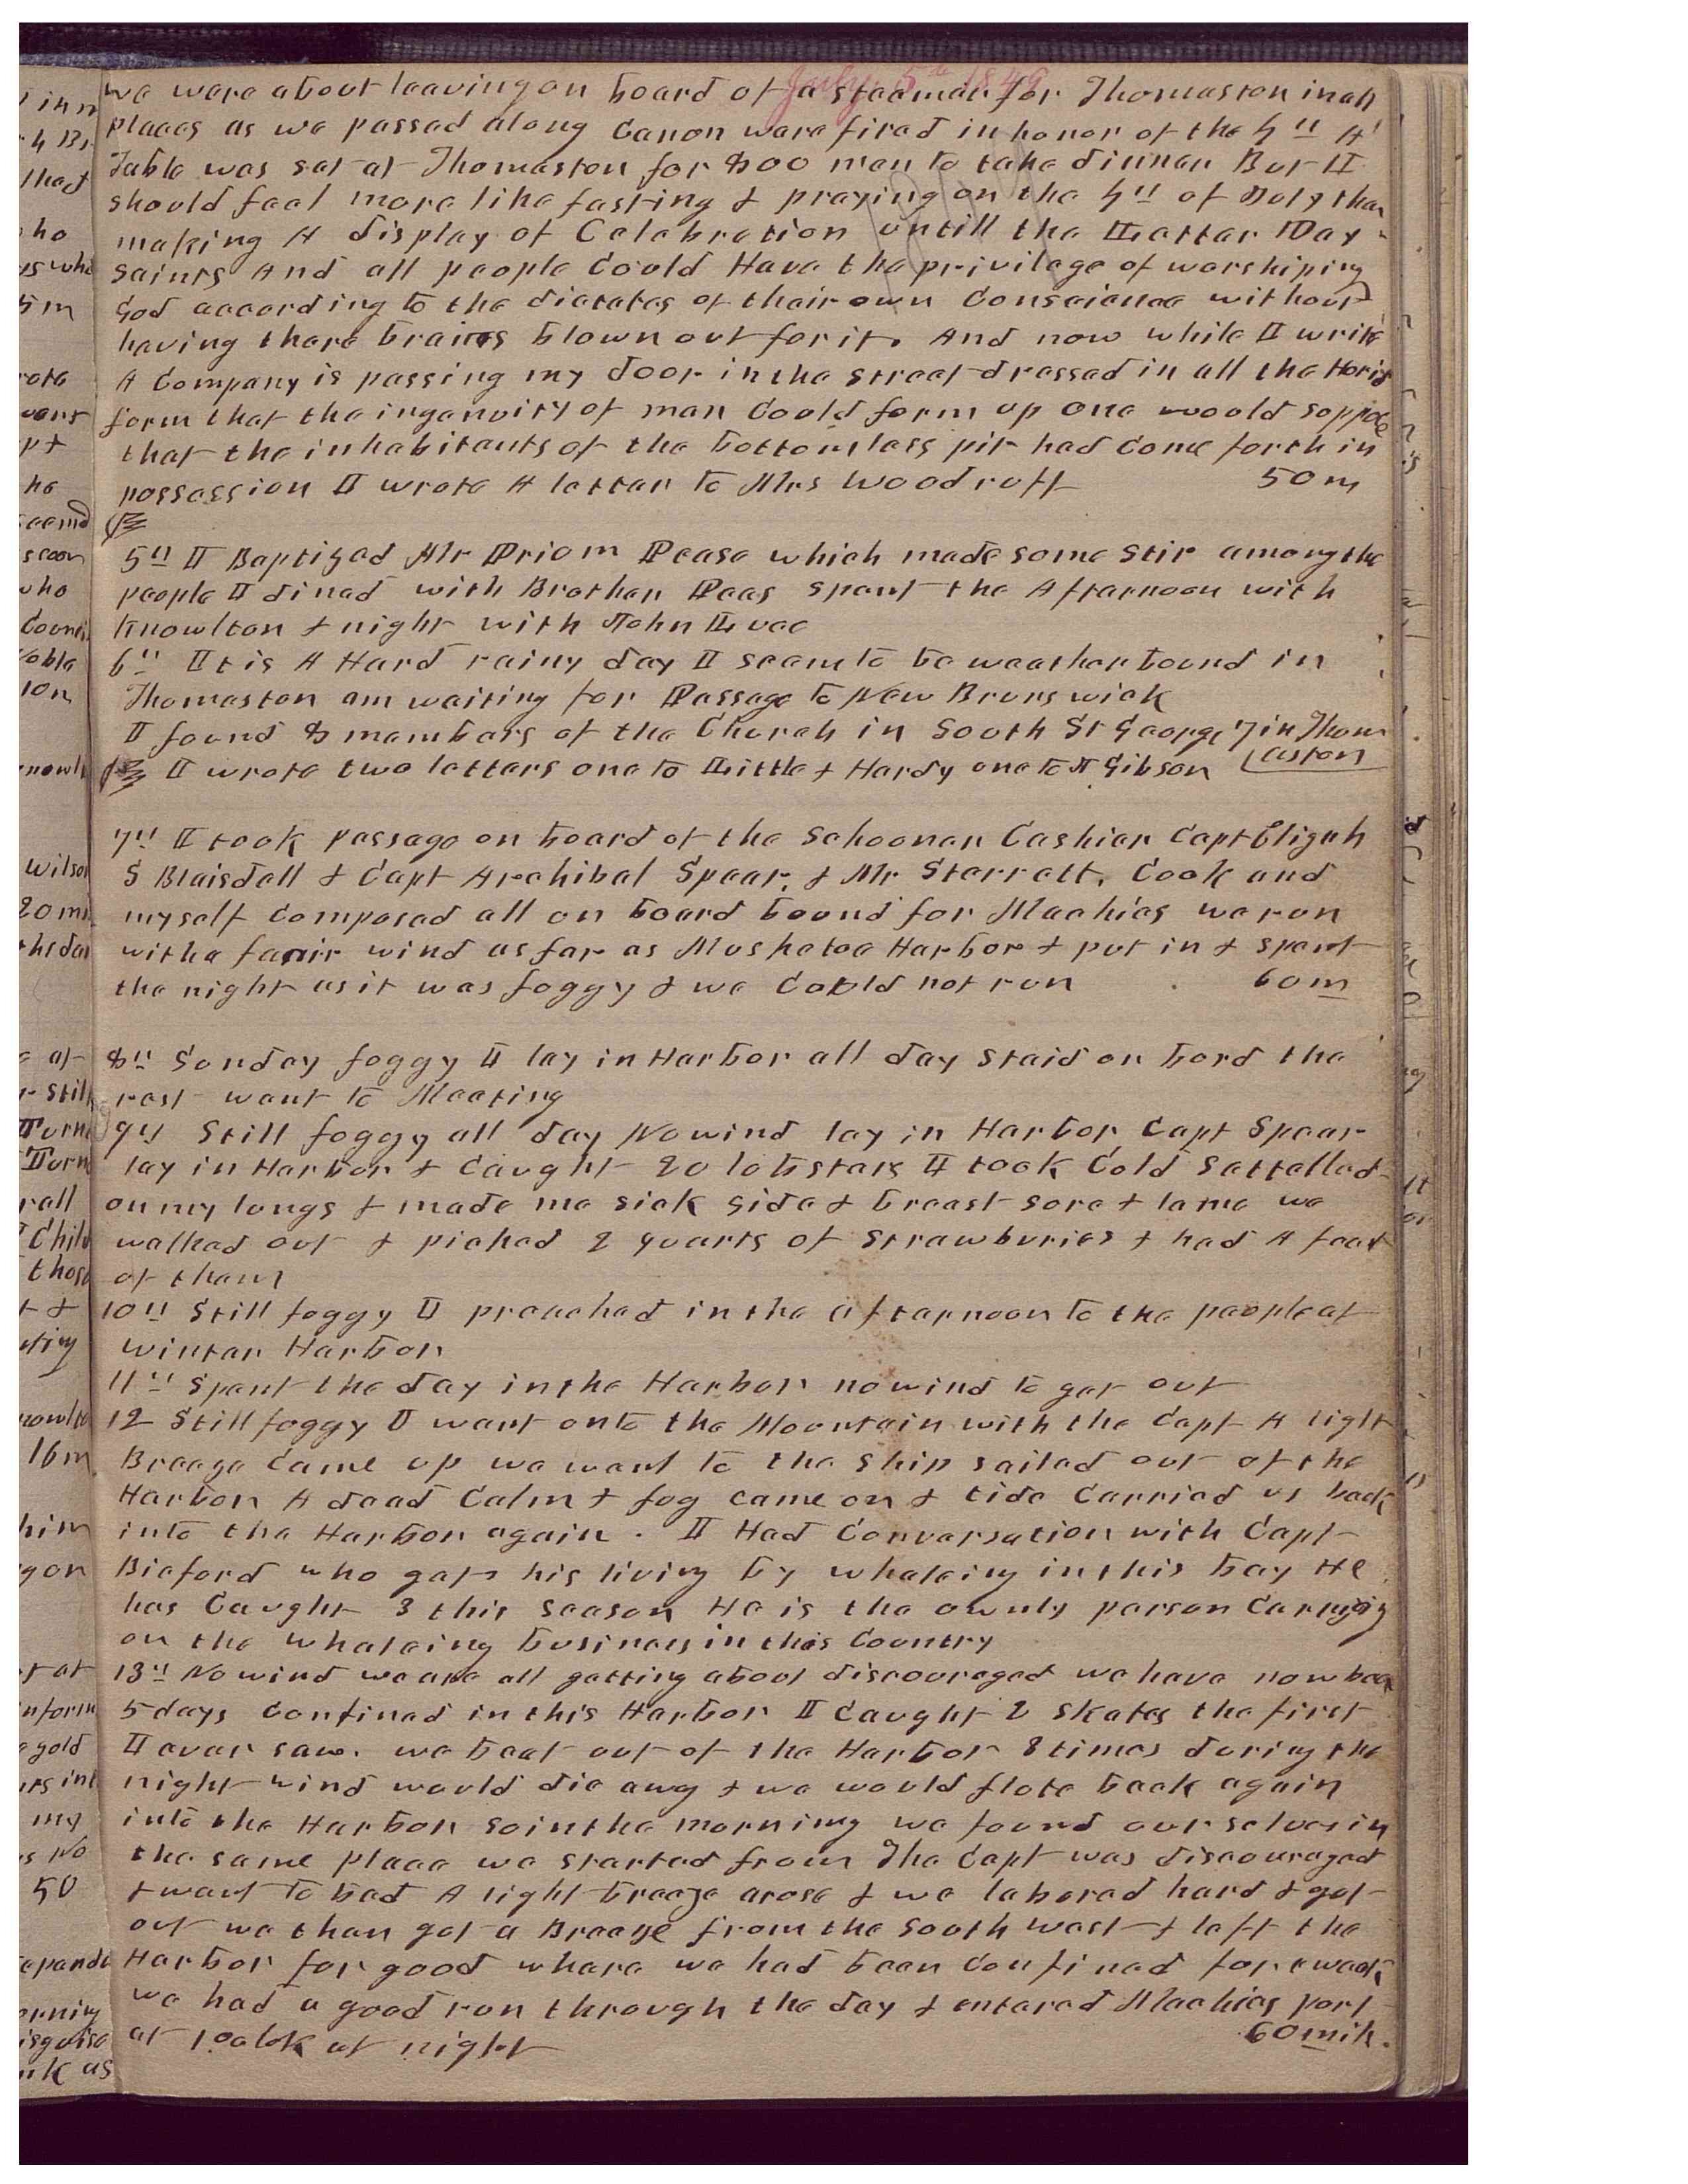 July 5th 1849
we were about leaving on board of a steamer for Thomaston in all
places as we passed along Canon were fired in honor of the 4th A
Table was set at Thomaston for 800 men to take dinner But I
should feel more like fasting & praying on the 4th of July than
making A display of Celebration untill the Latter Day
saints And all people Could Have the privilege of worshiping
God according to the dictates of their own Conscience without
having there brains blown out for it. And now while I write
A Company is passing my door in the street dressed in all the Horid
form that the ingenuity of man Could form up one would suppose
that the inhabitants of the bottomless pit had Come forth in
possession I wrote A letter to Mrs Woodruff 50 m
5th I Baptized Mr Priom Pease which made some stir among the
people I dined with Brother Peas spent the Afternoon with
Knowlton & night with John Luce
6th It is A Hard rainy day I seem to be weather bound in
Thomaston am waiting for Passage to New Brunswick
I found 8 members of the Church in South St George 7 in Thom
aston
I wrote two letters one to Little & Hardy one to J Gibson
7th I took passage on board of the Schooner Cashier Capt Elijah
S Blaisdell & Capt Archibal Spear, & Mr Starrett, Cook and
myself Composed all on board bound for Machias we run
with a fair wind as far as Musketoe Harbor & put in & spent
the night as it was foggy & we Could not run 60 m
8th Sunday foggy I lay in Harbor all day staid on bord the
rest went to Meeting
9th Still foggy all day No wind lay in Harbor Capt Spear
lay in Harbor & Caught 20 lobsters I took Cold settelled
on my lungs & made me sick side & breast sore & lame we
walked out & picked 2 quarts of strawburies & had A feast
of them
10th Still foggy I preached in the afternoon to the people at
winter Harbor
11th Spent the day in the Harbor no wind to get out
12 Still foggy I went onto the Mountain with the Capt A light
Breeze Came up we went to the ship sailed out of the
Harbor A dead Calm & fog came on & tide Carried us back
into the Harbor again. I Had Conversation with Capt
Bicford who gets his living by whaleing in this bay He
has Caught 3 this season He is the ownly person Carrying
on the whaleing business in this Country
13th No wind we are all getting about discouraged we have now been
5 days Confined in this Harbor I Caught 2 skates the first
I ever saw. we beat out of the Harbor 8 times during the
night wind would die awy & we would flote back again
into the Harbor so in the morning we found ourselves in
the same place we started from The Capt was discouraged
& went to bed A light breeze arose & we labored hard & got
out we then got a Breeze from the South west & left the
Harbor for good where we had been Confined for a week
we had a good run through the day & entered Machias port
at 1 oclok at night 60 mile.